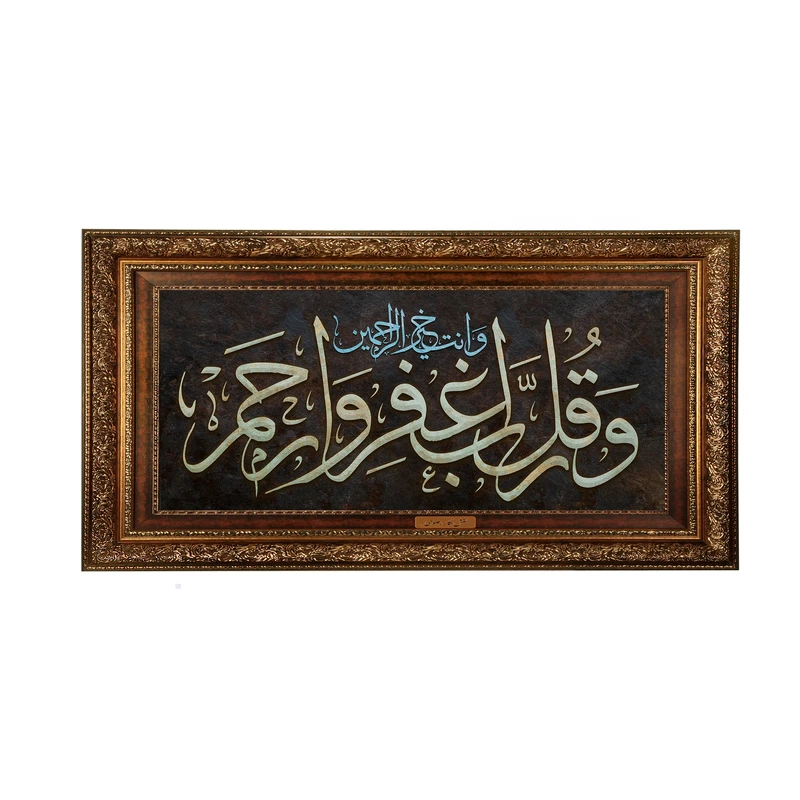 وَقُل رَّبِّ اغْفِرْ وَارْحَمْ
وَانت خیر الرحمین